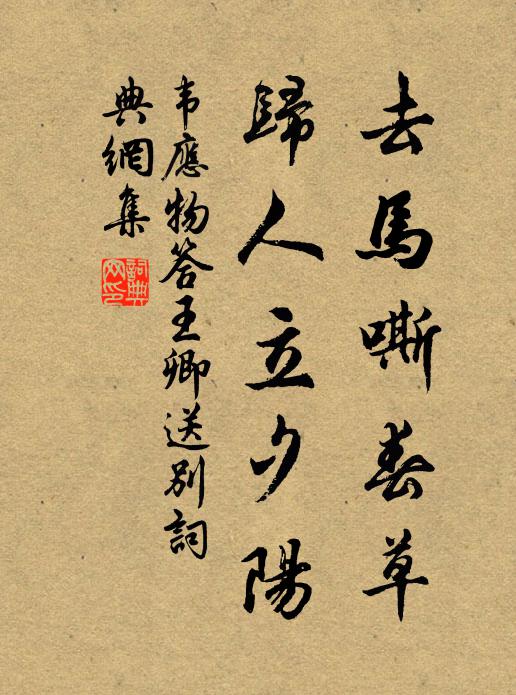 去馬嘶春草
歸人立夕陽
韦應物答王卿送別詞
典網集
詞典
网印